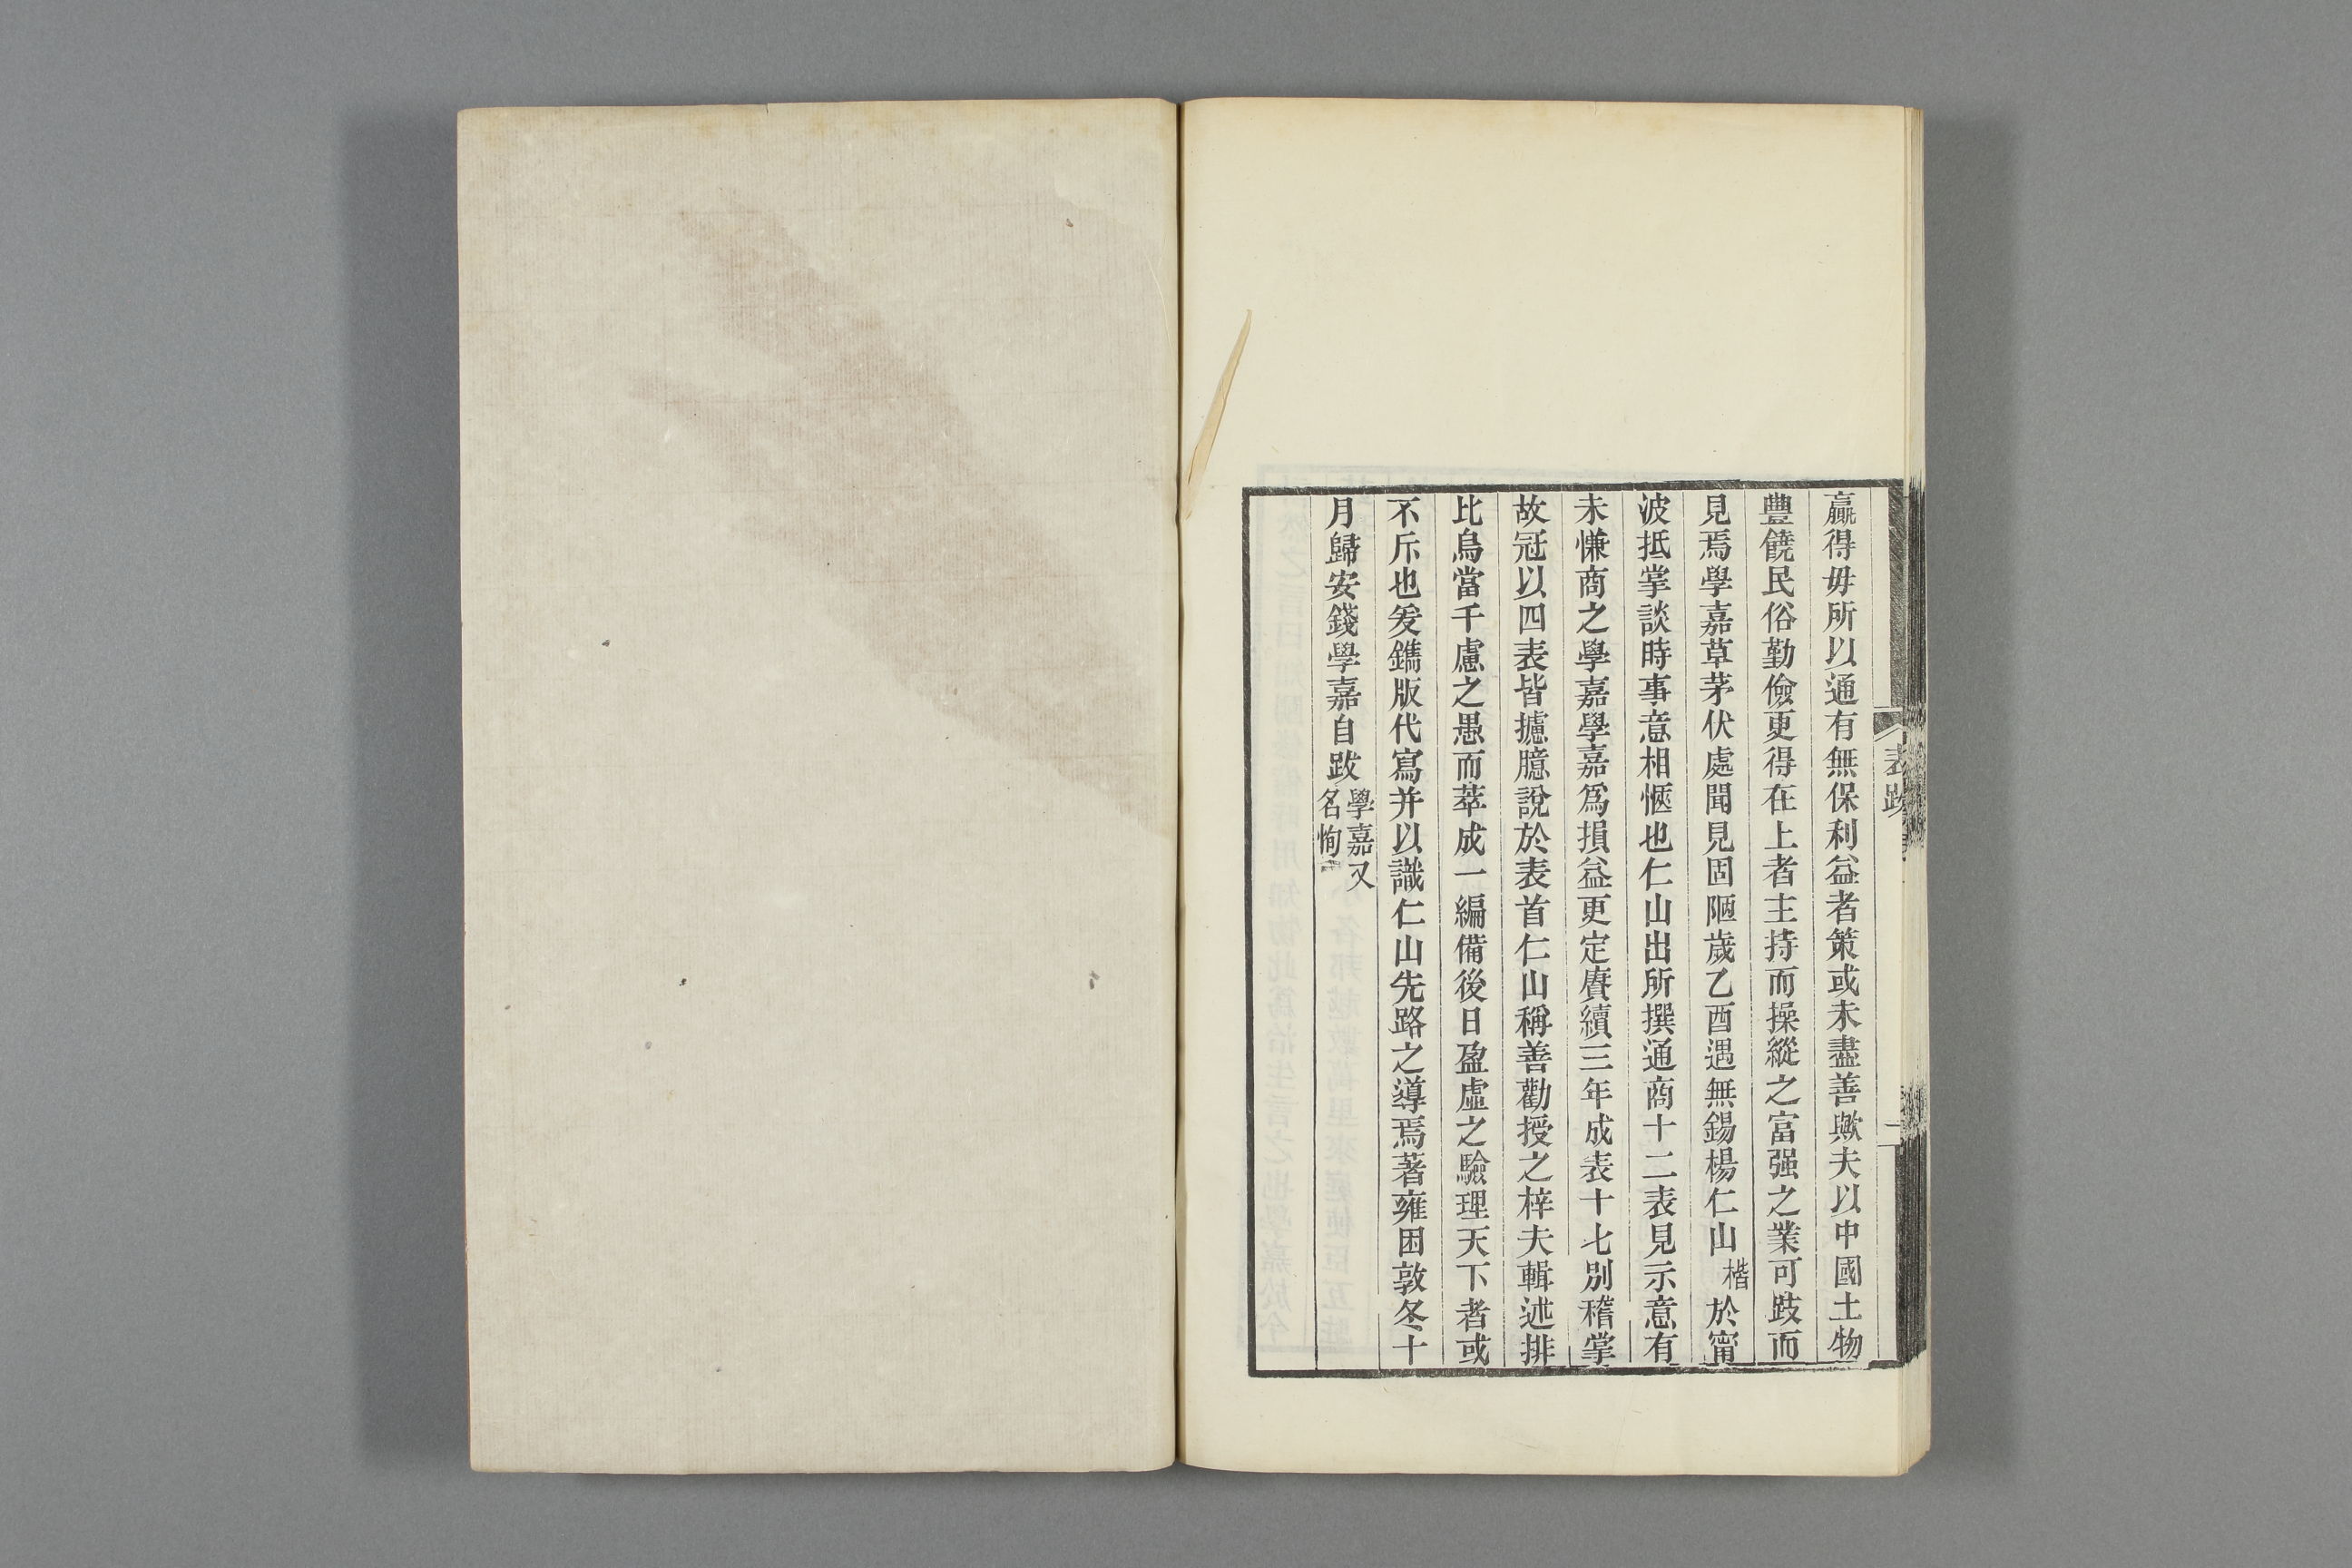 表跋
一
贏得毋所以通有無保利益者策或未盡善歟夫以中國土物
豐饒民俗勤儉更得在上者主持而操縱之富强之業可跂而
見焉學嘉草茅伏處聞見固陋歲乙酉遇無錫楊仁山楷於甯
波抵掌談時事意相愜也仁山出所撰通商十二表見示意有
未慊商之學嘉學嘉爲損益更定賡續三年成表十七別稽掌
故冠以四表皆攄臆說於表首仁山稱善勸授之梓夫輯述排
比烏當千慮之愚而萃成一編備後日盈虛之驗理天下者或
不斥也爰鐫版代寫并以識仁山先路之導焉著雍困敦冬十
月歸安錢學嘉自跋學嘉又名恂